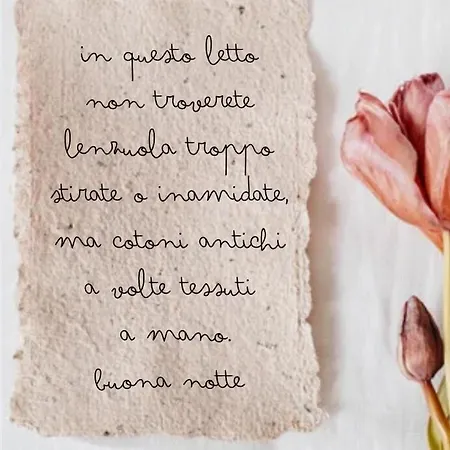 in questo letto
non troverete
lenzuola troppo
stirate o inamidate,
ma cotoni antichi
a volte tessuti
a mano.
buona notte